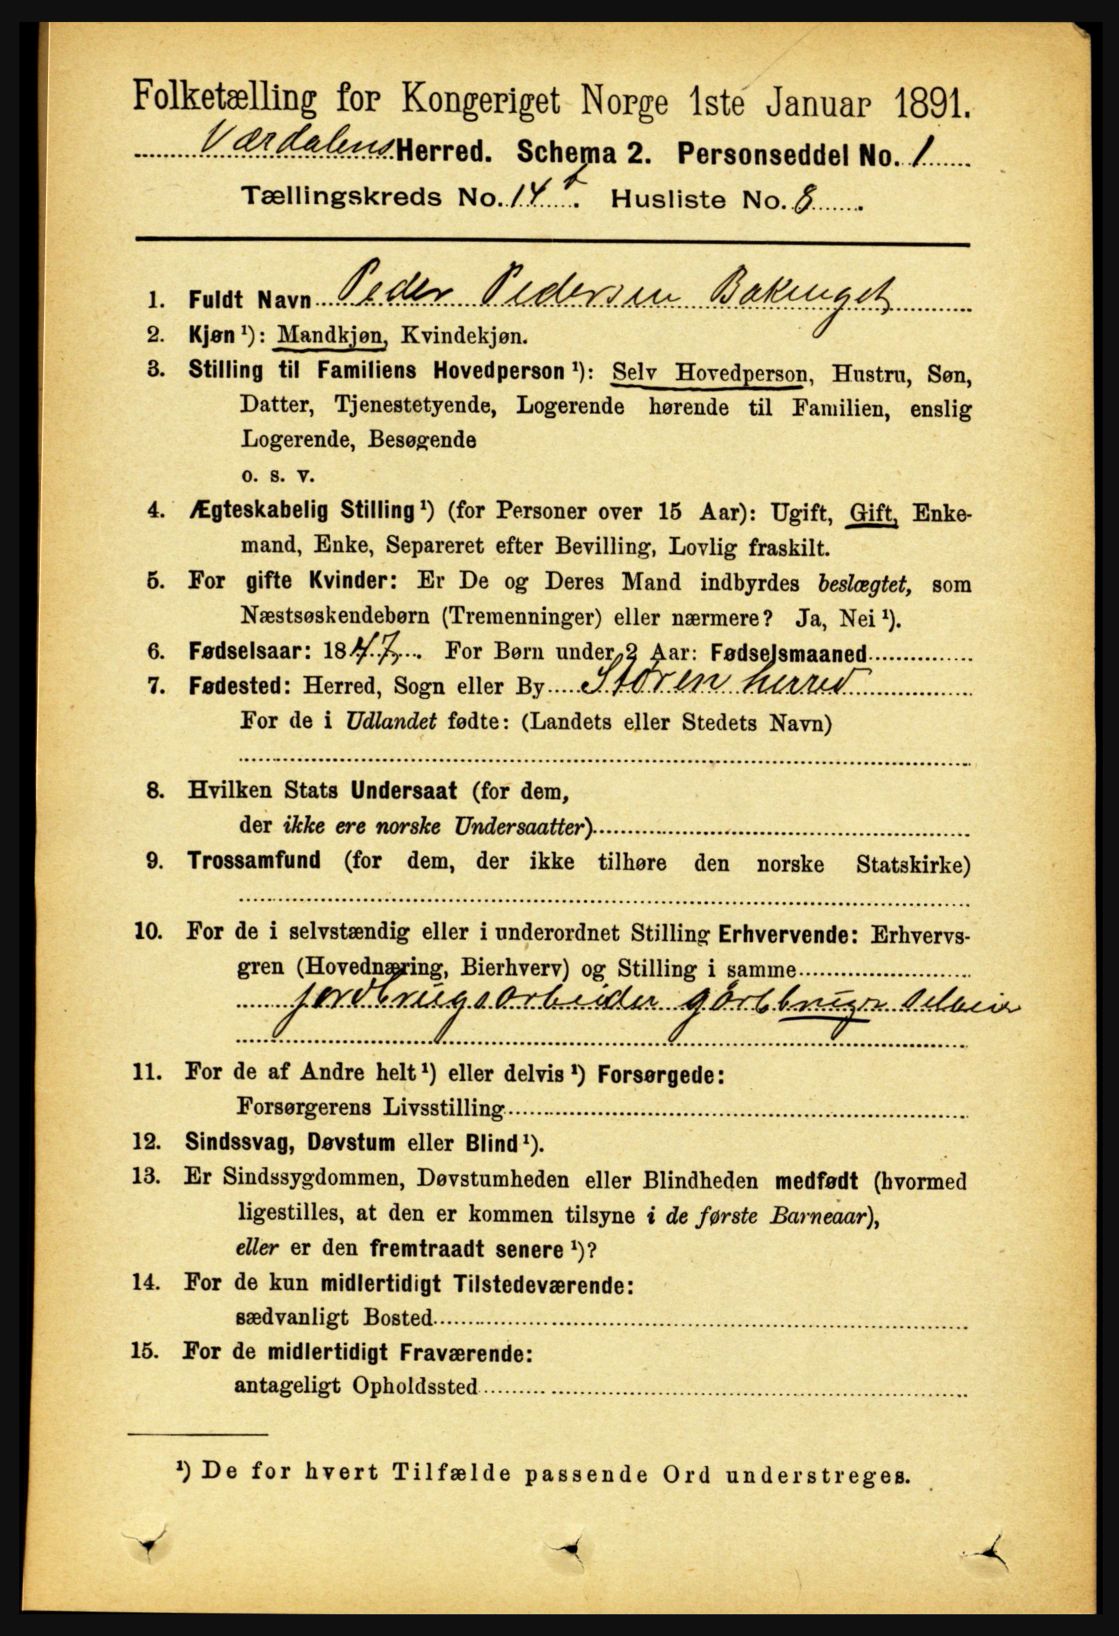 Folketælling for Kongeriget Norge 1ste Januar 1891.
Værdalens Herred. Schema 2. Personseddel No. 1
Tællingskreds No. 14 . Husliste No. 8 .
1. Fuldt Navn Peder Pedersen
2. Kjøn ¹): Mandkjøn, Kvindekjøn.
3. Stilling til Familiens Hovedperson ¹): Selv Hovedperson, Hustru, Søn,
Datter, Tjenestetyende, Logerende hørende til Familien, enslig
Logerende, Besøgende
o. s. v.
4. Ægteskabelig Stilling ¹) (for Personer over 15 Aar): Ugift, Gift, Enke-
mand, Enke, Separeret efter Bevilling, Lovlig fraskilt.
5. For gifte Kvinder: Er De og Deres Mand indbyrdes beslægtet, som
Næstsøskendebørn (Tremenninger) eller nærmere? Ja, Nei ¹).
6. Fødselsaar: 1847. For Børn under 2 Aar: Fødselsmaaned
7. Fødested: Herred, Sogn eller By Støren herred
For de i Udlandet fødte: (Landets eller Stedets Navn)
8. Hvilken Stats Undersaat (for dem,
der ikke ere norske Undersaatter)
9. Trossamfund (for dem, der ikke tilhøre den norske Statskirke)
10. For de i selvstændig eller i underordnet Stilling Erhvervende: Erhvervs-
gren (Hovednæring, Bierhverv) og Stilling i samme
jordbrugsarbeider selveier
11. For de af Andre helt ¹) eller delvis ¹) Forsørgede:
Forsørgerens Livsstilling
12. Sindssvag, Døvstum eller Blind ¹).
13. Er Sindssygdommen, Døvstumheden eller Blindheden medfødt (hvormed
ligestilles, at den er kommen tilsyne i de første Barneaar),
eller er den fremtraadt senere ¹)?
14. For de kun midlertidigt Tilstedeværende:
sædvanligt Bosted
15. For de midlertidigt Fraværende:
antageligt Opholdssted
¹) De for hvert Tilfælde passende Ord understreges.